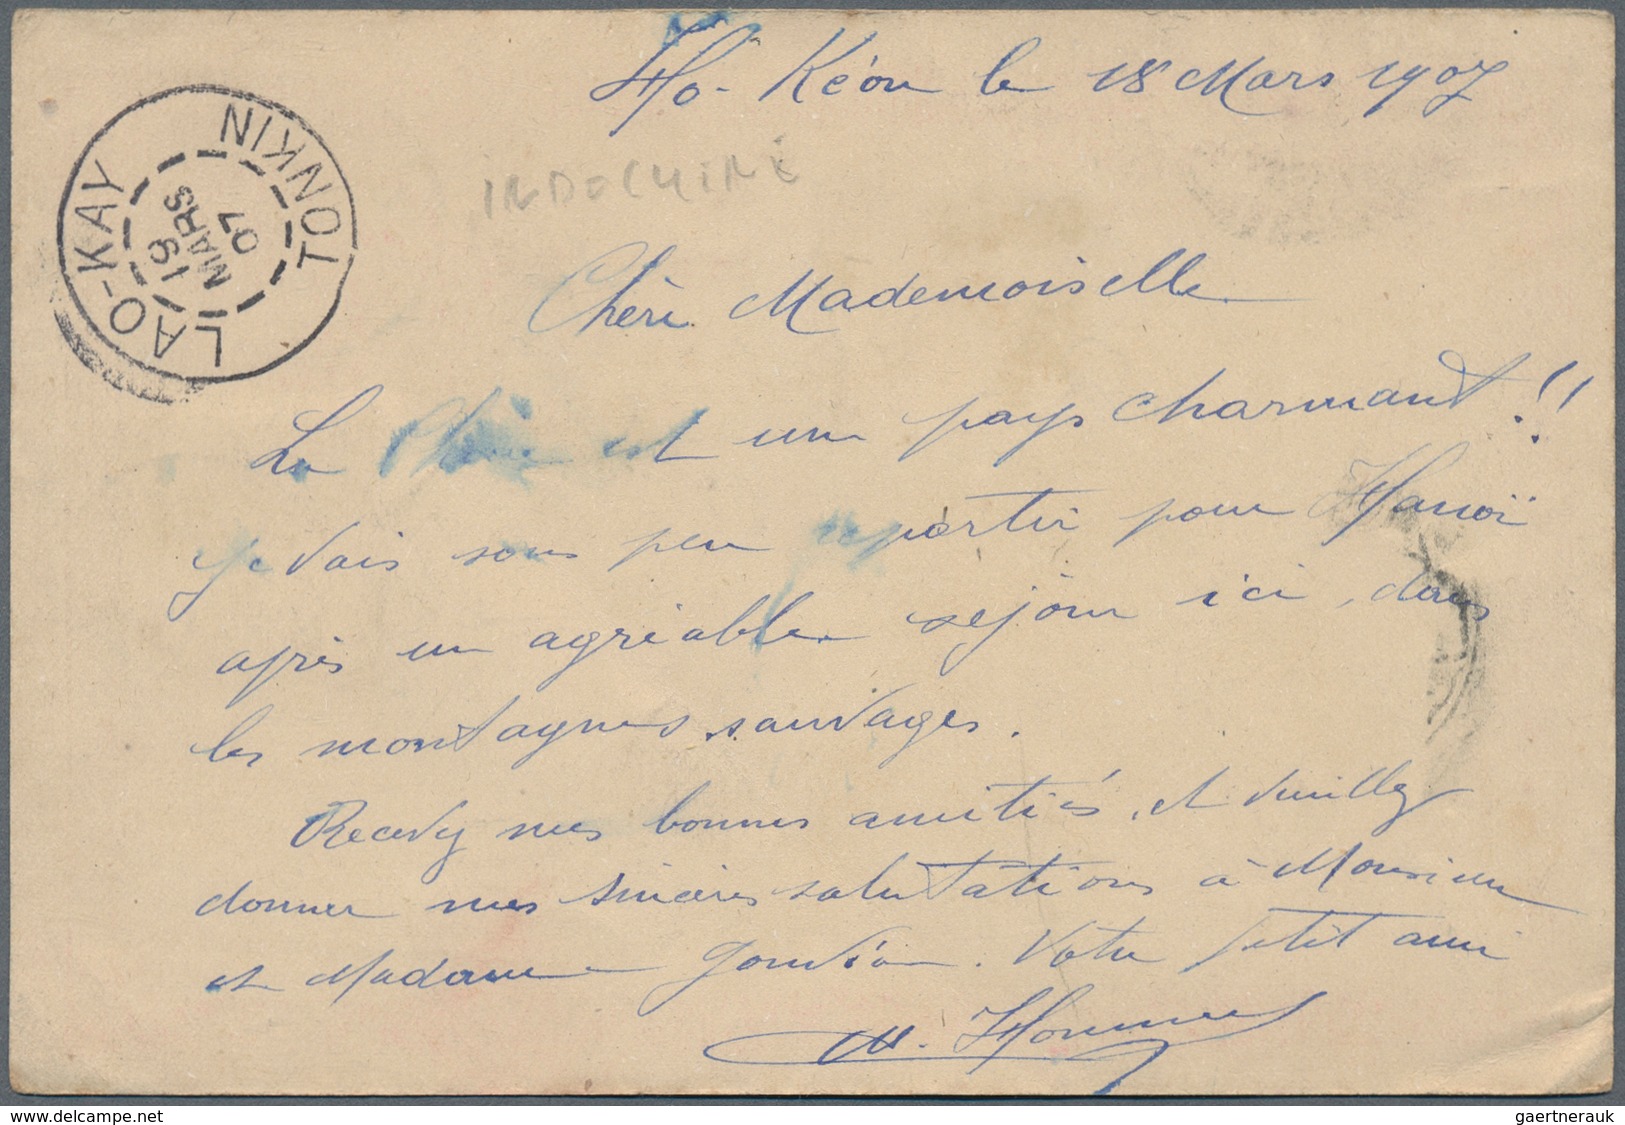 Ho-Kéou le 18 Mars 1907
INDOCHINE
TONKIN
LAO-KAY
19
MARS
07
Chère Mademoiselle
La Chine est un pays charmant!!
je vais sous peu repartir pour Hanoï
après un agréable séjour ici, dans
les montagnes sauvages.
Recevez mes bonnes amitiés, et veuillez
donner mes sincères salutations à Monsieur
et Madame. Votre petit ami
www.delcampe.net
gaertnerauk